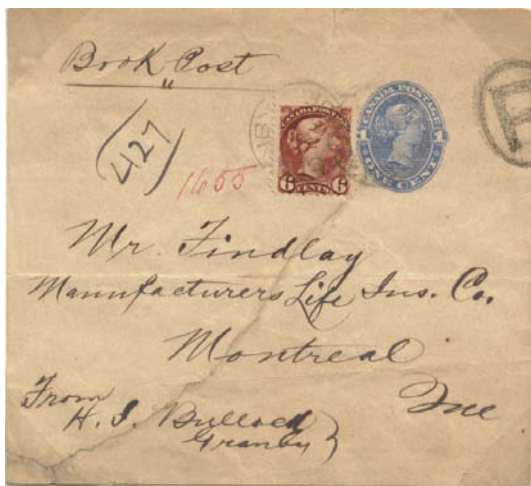 Book Post
(427)
1655
CANADA POSTAGE
6 CENTS 6
CANADA POSTAGE
1 1
ONE CENT
R
Mr. Findlay
Manufacturers Life Ins. Co.
Montreal
Que
From
H. J. Bullock
Granby